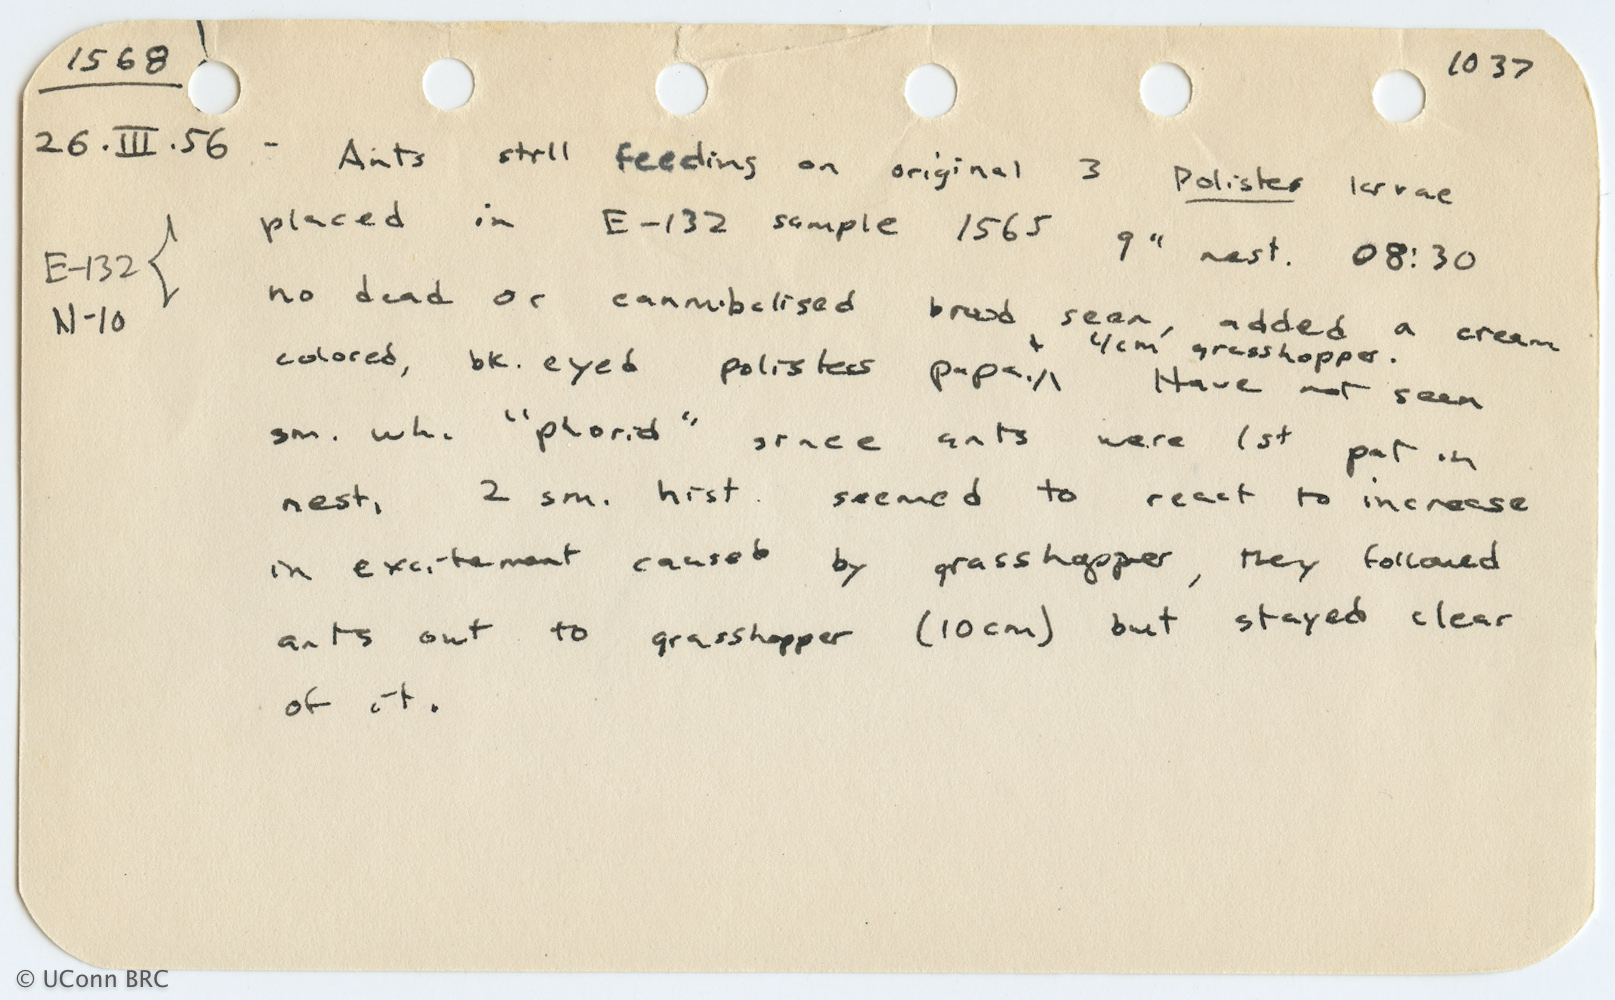 1568
1037
26.III.56 - Ants still feeding on original 3 Polistes larvae
placed in E-132 sample 1565 9" nest. 08:30
E-132
N-10
no dead or cannibalised brood seen, added a cream
colored, bk. eyed polistes pupa. + 4cm grasshopper. Have not seen
sm. wh. "phorid" since ants were 1st put in
nest, 2 sm. hist. seemed to react to increase
in excitement caused by grasshopper, they followed
ants out to grasshopper (10cm) but stayed clear
of it.
© UConn BRC